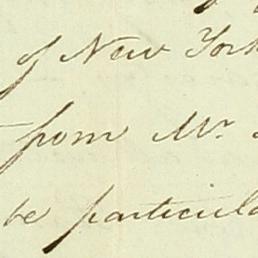 of New York
from Mr.
be particula